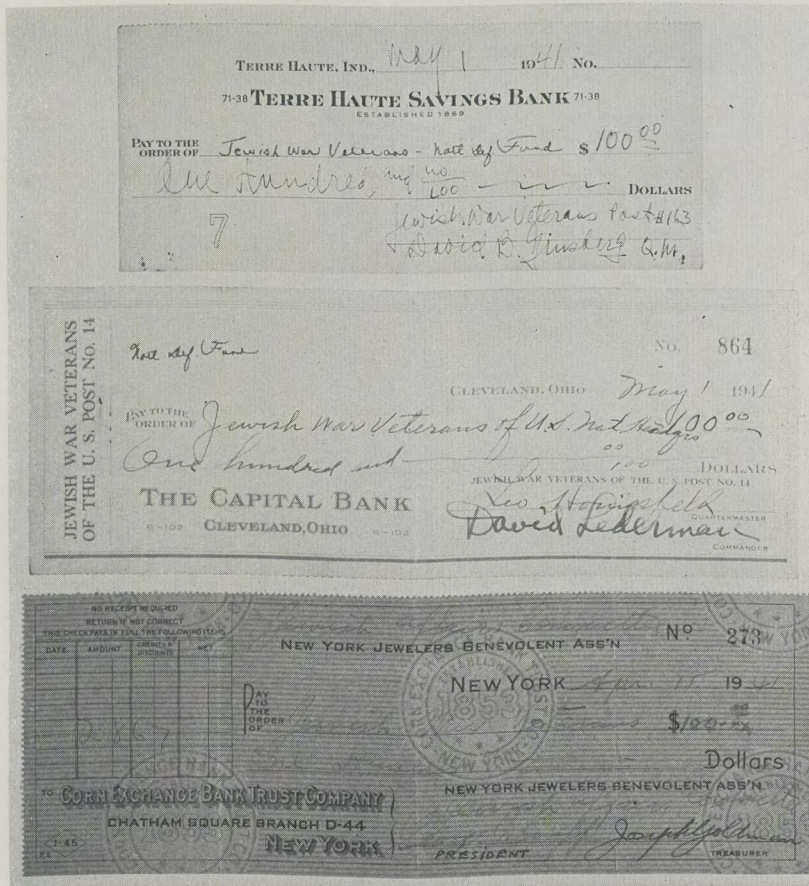 TERRE HAUTE, IND., May 1 1941 No.
71-38 TERRE HAUTE SAVINGS BANK 71-38
ESTABLISHED 1869
PAY TO THE
ORDER OF Jewish War Veterans - Natl Def Fund $ 100 00
One Hundred, and no/100 DOLLARS
7
Jewish War Veterans Post #163
David B. Ginsberg Q.M.
JEWISH WAR VETERANS
OF THE U. S. POST NO. 14
Natl Def. Fund
No. 864
CLEVELAND, OHIO May 1 1941
PAY TO THE
ORDER OF Jewish War Veterans of U.S. Nat 100 00
One hundred and 00/100 DOLLARS
JEWISH WAR VETERANS OF THE U. S. POST NO. 14
THE CAPITAL BANK
6-102 CLEVELAND, OHIO 6-102
Leo
QUARTERMASTER
David Lederman
COMMANDER
NO RECEIPT REQUIRED
RETURN IF NOT CORRECT
THIS CHECK PAYS IN FULL THE FOLLOWING ITEMS
DATE AMOUNT CREDITS & DISCOUNTS NET
NEW YORK JEWELERS BENEVOLENT ASS'N
No 273
NEW YORK Apr. 15 1941
PAY
TO
THE
ORDER
OF Jewish $100
Dollars
CORN EXCHANGE BANK TRUST CO.
ESTABLISHED
1853
NEW YORK
TO CORN EXCHANGE BANK TRUST COMPANY
CHATHAM SQUARE BRANCH D-44
NEW YORK
1-45
NEW YORK JEWELERS BENEVOLENT ASS'N
PRESIDENT
Joseph Goldman
TREASURER